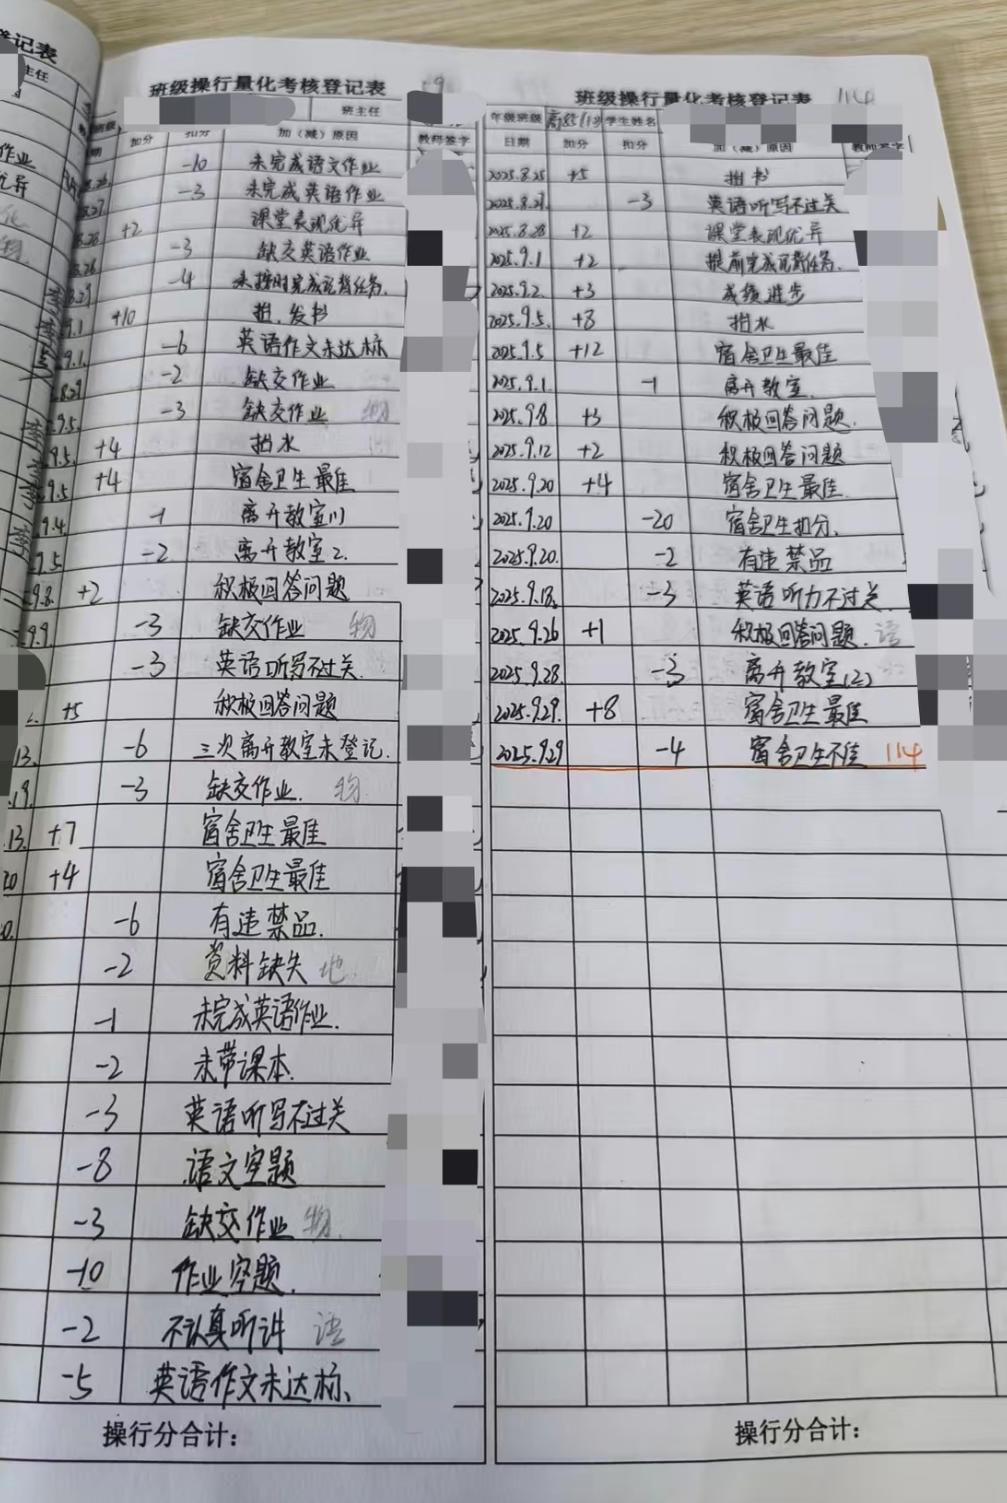 登记表
主任
作业
优异
班级操行量化考核登记表
班主任
加分 扣分 加（减）原因 教师签字
-10 未完成语文作业
-3 未完成英语作业
+2 课堂表现优异
-3 缺交英语作业
-4 未按时完成记背任务
+10 担、发书
-6 英语作文未达标
-2 缺交作业
-3 缺交作业 物
9.5 +4 抬水
9.5 +4 宿舍卫生最佳
9.4 -1 离开教室
9.5 -2 离开教室2.
9.8. +2 积极回答问题
9.9. -3 缺交作业 物
-3 英语听写不过关.
+5 积极回答问题
13. -6 三次离开教室未登记.
19. -3 缺交作业. 物
13. +7 宿舍卫生最佳
20 +4 宿舍卫生最佳
-6 有违禁品.
-2 资料缺失 地
-1 未完成英语作业.
-2 未带课本.
-3 英语听写不过关
-8 语文空题
-3 缺交作业 物
-10 作业空题.
-2 不认真听讲 语
-5 英语作文未达标、
操行分合计：
班级操行量化考核登记表 114
年级班级 学生姓名
日期 加分 扣分 加（减）原因 教师签字
2025.8.25 +5 担书
2025.8.27. -3 英语听写不过关
2025.8.28 +2 课堂表现优异
2025.9.1 +2 提前完成记背任务.
2025.9.2. +3 成绩进步
2025.9.5. +8 抬水
2025.9.5 +12 宿舍卫生最佳
2025.9.1 -1 离开教室.
2025.9.8 +3 积极回答问题.
2025.9.12 +2 积极回答问题
2025.9.20 +4 宿舍卫生最佳.
2025.9.20 -20 宿舍卫生扣分.
2025.9.20. -2 有违禁品
2025.9.18. -3 英语听力不过关.
2025.9.26 +1 积极回答问题. 语
2025.9.28. -3 离开教室(2)
2025.9.29. +8 宿舍卫生最佳
2025.9.29 -4 宿舍卫生不佳 114
操行分合计：